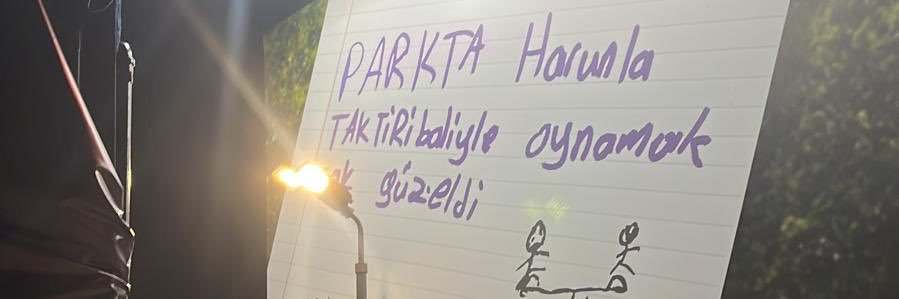 PARKTA Harunla
TAKTİRİbaliyle oynamak
güzeldi